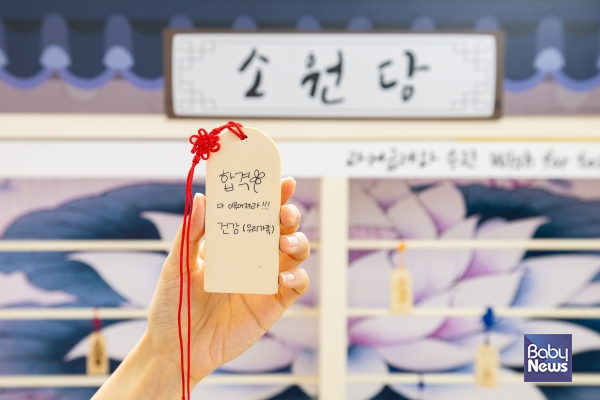 소원당
소원 Wish for
합격
다 이루어져라!!!
건강 (우리가족)
Baby
News